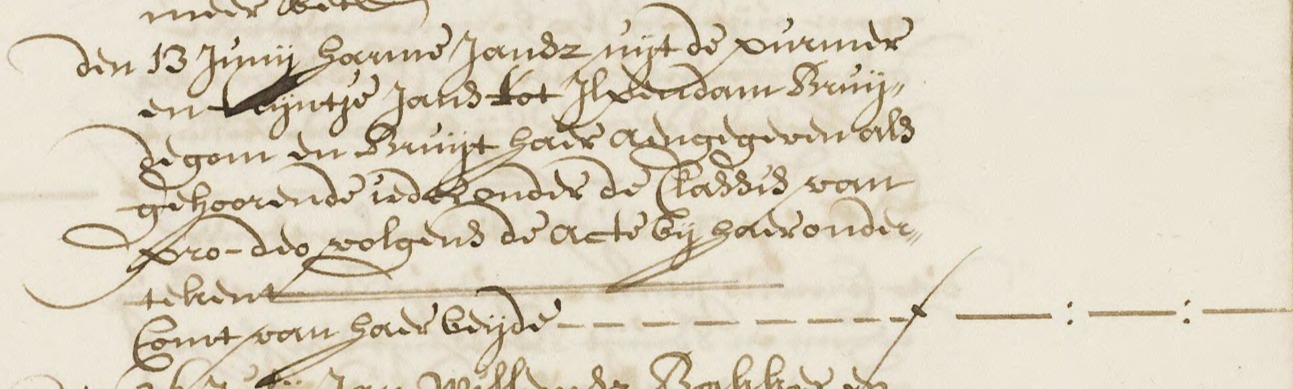 den 13 Junij harme Jansz uijt de purmer
en Trijntje Jans tot Ilpendam Bruij„
degom en Bruijt haer aengegeven als
gehoorende ieder onder de Classis van
pro-deo volgens de acte bij haer onder„
tekent
Comt van haer beijde - - - - - - - - - — : — : —
Jan Willemsz Bakker en